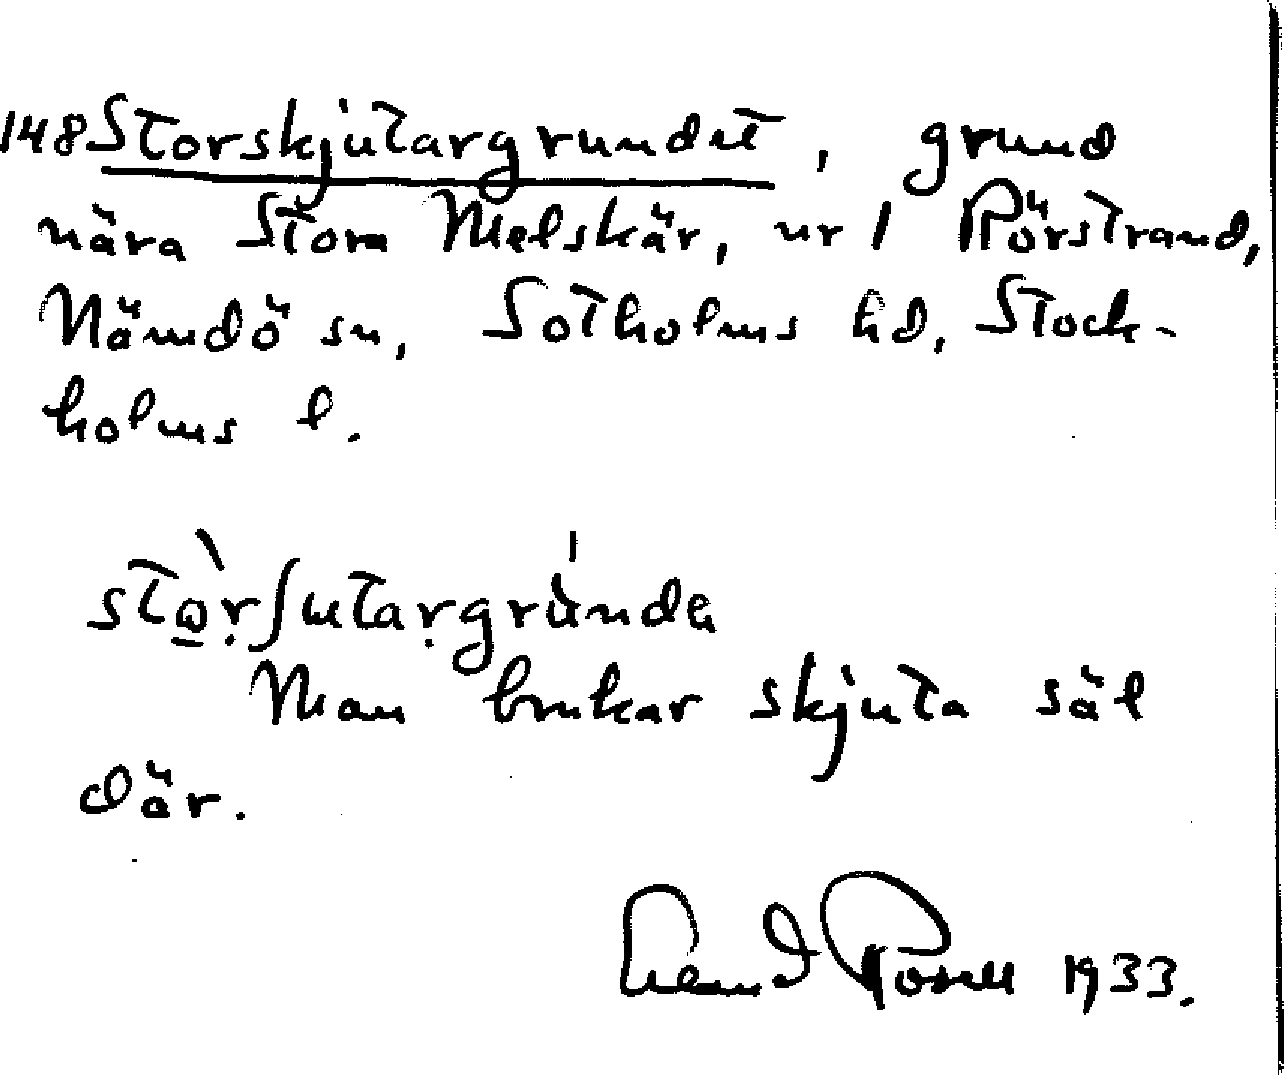 148 Storskjutargrundet, grund
nära Stora Melskär, ur 1 Rörstrand,
Nämdö sn, Sotholms hd, Stock-
holms l.
stò̱ṛʃutaṛgrúndə
Man brukar skjuta säl
där.
1933.